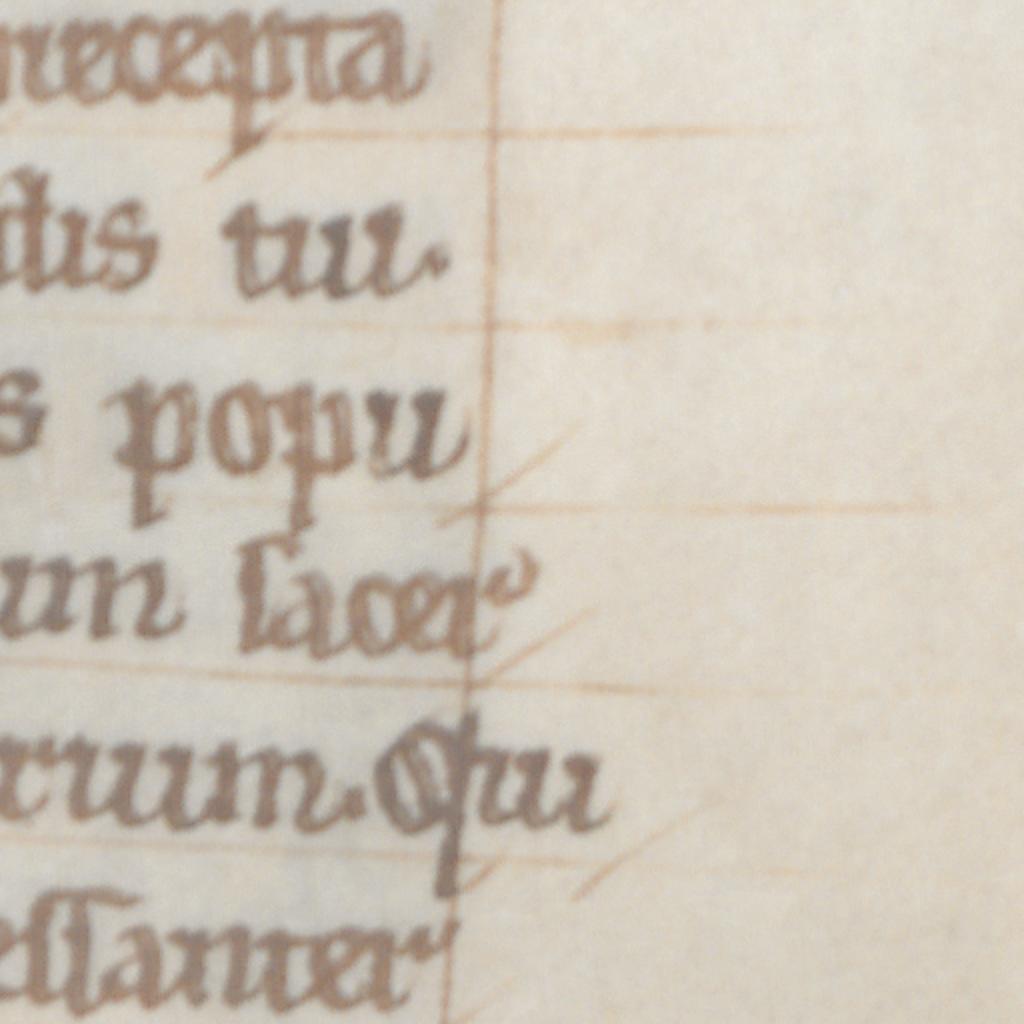 recepta
dis tui.
s popu
um sacer
ruum. Qui
essanter